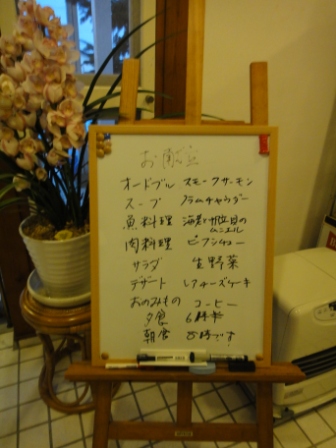 お献立
オードブル スモークサーモン
スープ クラムチャウダー
魚料理 海老と帆立貝の
ムニエル
肉料理 ビフシチュー
サラダ 生野菜
デザート レアチーズケーキ
おのみもの コーヒー
夕食 6時半
朝食 8時です